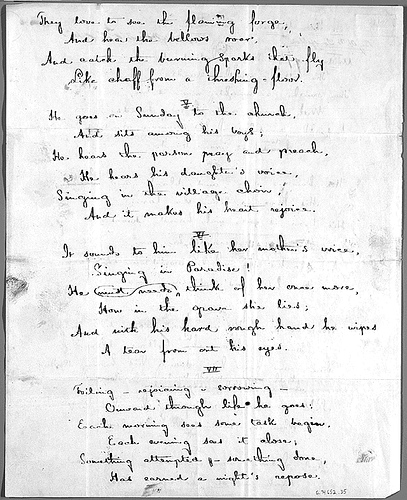 They love to see the flaming forge,
And hear the bellows roar,
And catch the burning sparks that fly
Like chaff from a threshing-floor.
V
He goes on Sunday to the church,
And sits among his boys;
He hears the parson pray and preach,
He hears his daughter's voice,
Singing in the village choir,
And it makes his heart rejoice.
VI
It sounds to him like her mother's voice,
Singing in Paradise!
He must needs think of her once more,
How in the grave she lies;
And with his hard rough hand he wipes
A tear from out his eyes.
VII
Toiling - rejoicing - sorrowing -
Onward through life he goes:
Each morning sees some task begin,
Each evening sees it close;
Something attempted - something done,
Has earned a night's repose.